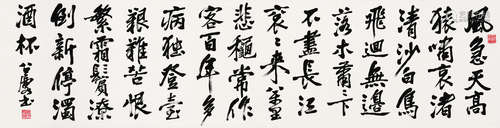 風急天高
猿嘯哀渚
清沙白鳥
飛迴無邊
落木蕭々下
不盡長江
衮々來萬里
悲穐常作
客百年多
病獨登臺
艱難苦恨
繁霜鬢潦
倒新停濁
酒杯